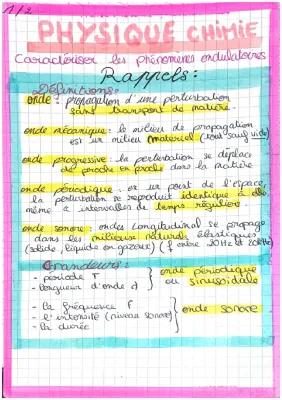 1/2
PHYSIQUE CHIMIE
Caractériser les phénomènes ondulatoires
Rappels :
Définitions :
onde : propagation d'une perturbation
sans transport de matière.
onde mécanique : le milieu de propagation
est un milieu matériel (tout sauf vide)
onde progressive : la perturbation se déplace
de proche en proche dans la matière
onde périodique : en un point de l'espace,
la perturbation se reproduit identique à elle
même à intervalles de temps réguliers.
onde sonore : ondes longitudinal se propage
dans les milieux naturels élastiques
(solide, liquide en gazeux) (f entre 20Hz et 20kHz)
Grandeurs :
- période T
- longueur d'onde λ
onde périodique
ou sinusoïdale
- la fréquence f
- l'intensité (niveau sonore)
- la durée
onde sonore